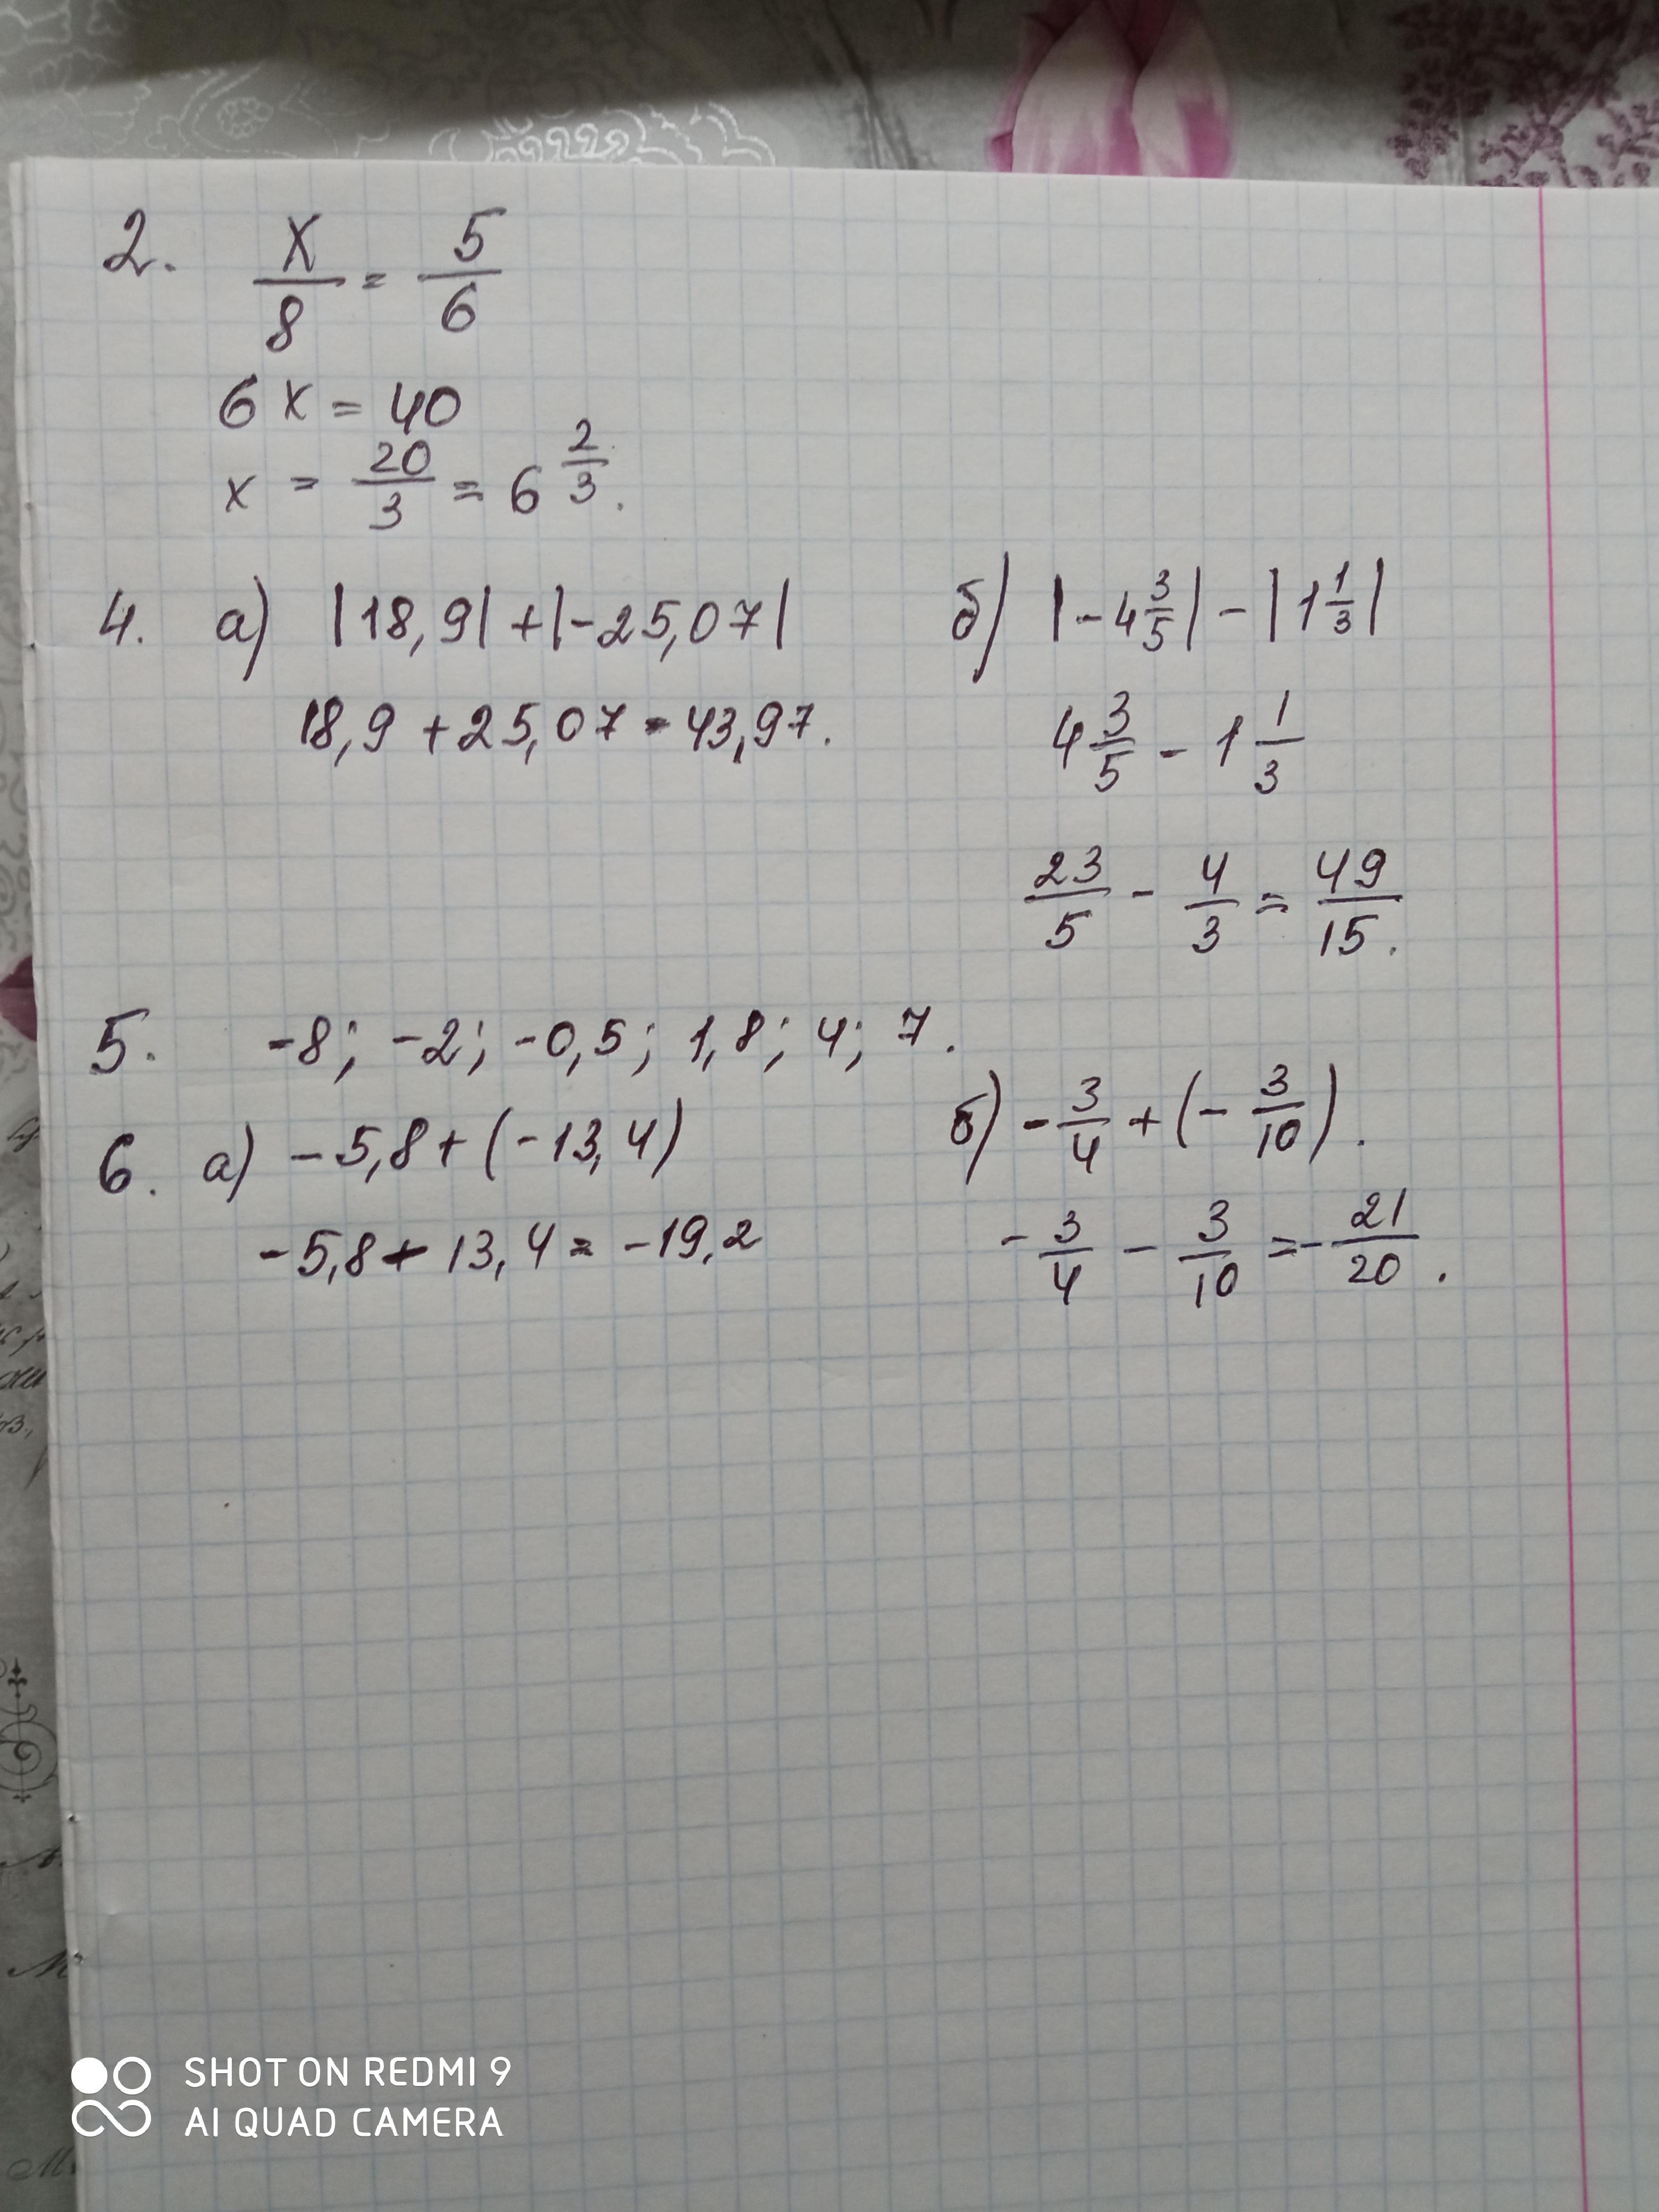 2. x/8 = 5/6
6x = 40
x = 20/3 = 6 2/3.
4. а) |18,9| + |-25,07|
18,9 + 25,07 = 43,97.
б) |-4 3/5| - |1 1/3|
4 3/5 - 1 1/3
23/5 - 4/3 = 49/15.
5. -8; -2; -0,5; 1,8; 4; 7.
6. а) -5,8 + (-13,4)
-5,8 - 13,4 = -19,2
б) -3/4 + (-3/10).
-3/4 - 3/10 = -21/20.
SHOT ON REDMI 9
AI QUAD CAMERA